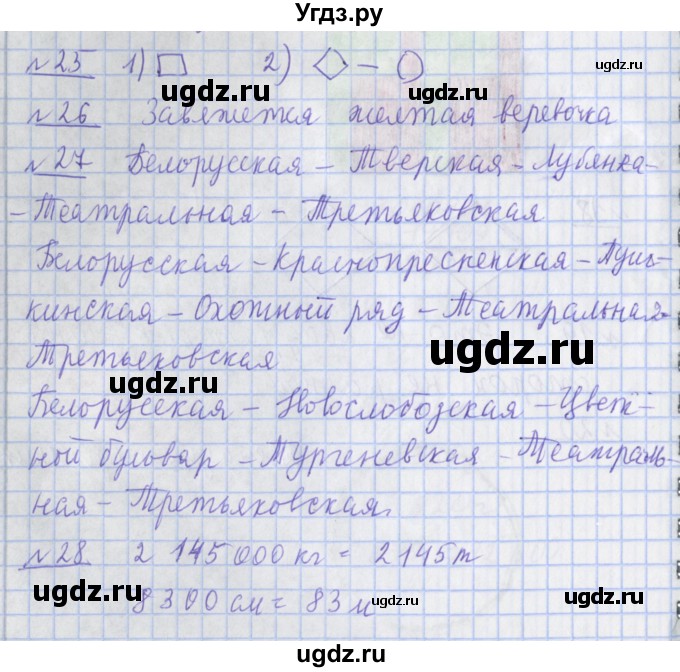 Угдз.ру
№25 1) 2) –
ugdz.ru ugdz.ru
№26 Завяжется желтая веревочка
ugdz.ru
№27 Белорусская – Тверская – Лубянка –
– Театральная – Третьяковская
ugdz.ru ugdz.ru
Белорусская – Краснопресненская – Пуш-
кинская – Охотный ряд – Театральная –
ugdz.ru
Третьяковская
ugdz.ru
Белорусская – Новослободская – Цвет-
ugdz.ru
ной бульвар – Тургеневская – Театраль-
ugdz.ru ugdz.ru
ная – Третьяковская
ugdz.ru
№28 2 145 000 кг = 2145 т
ugdz.ru
8300 см = 83 м
ugdz.ru ugdz.ru
ugdz.ru